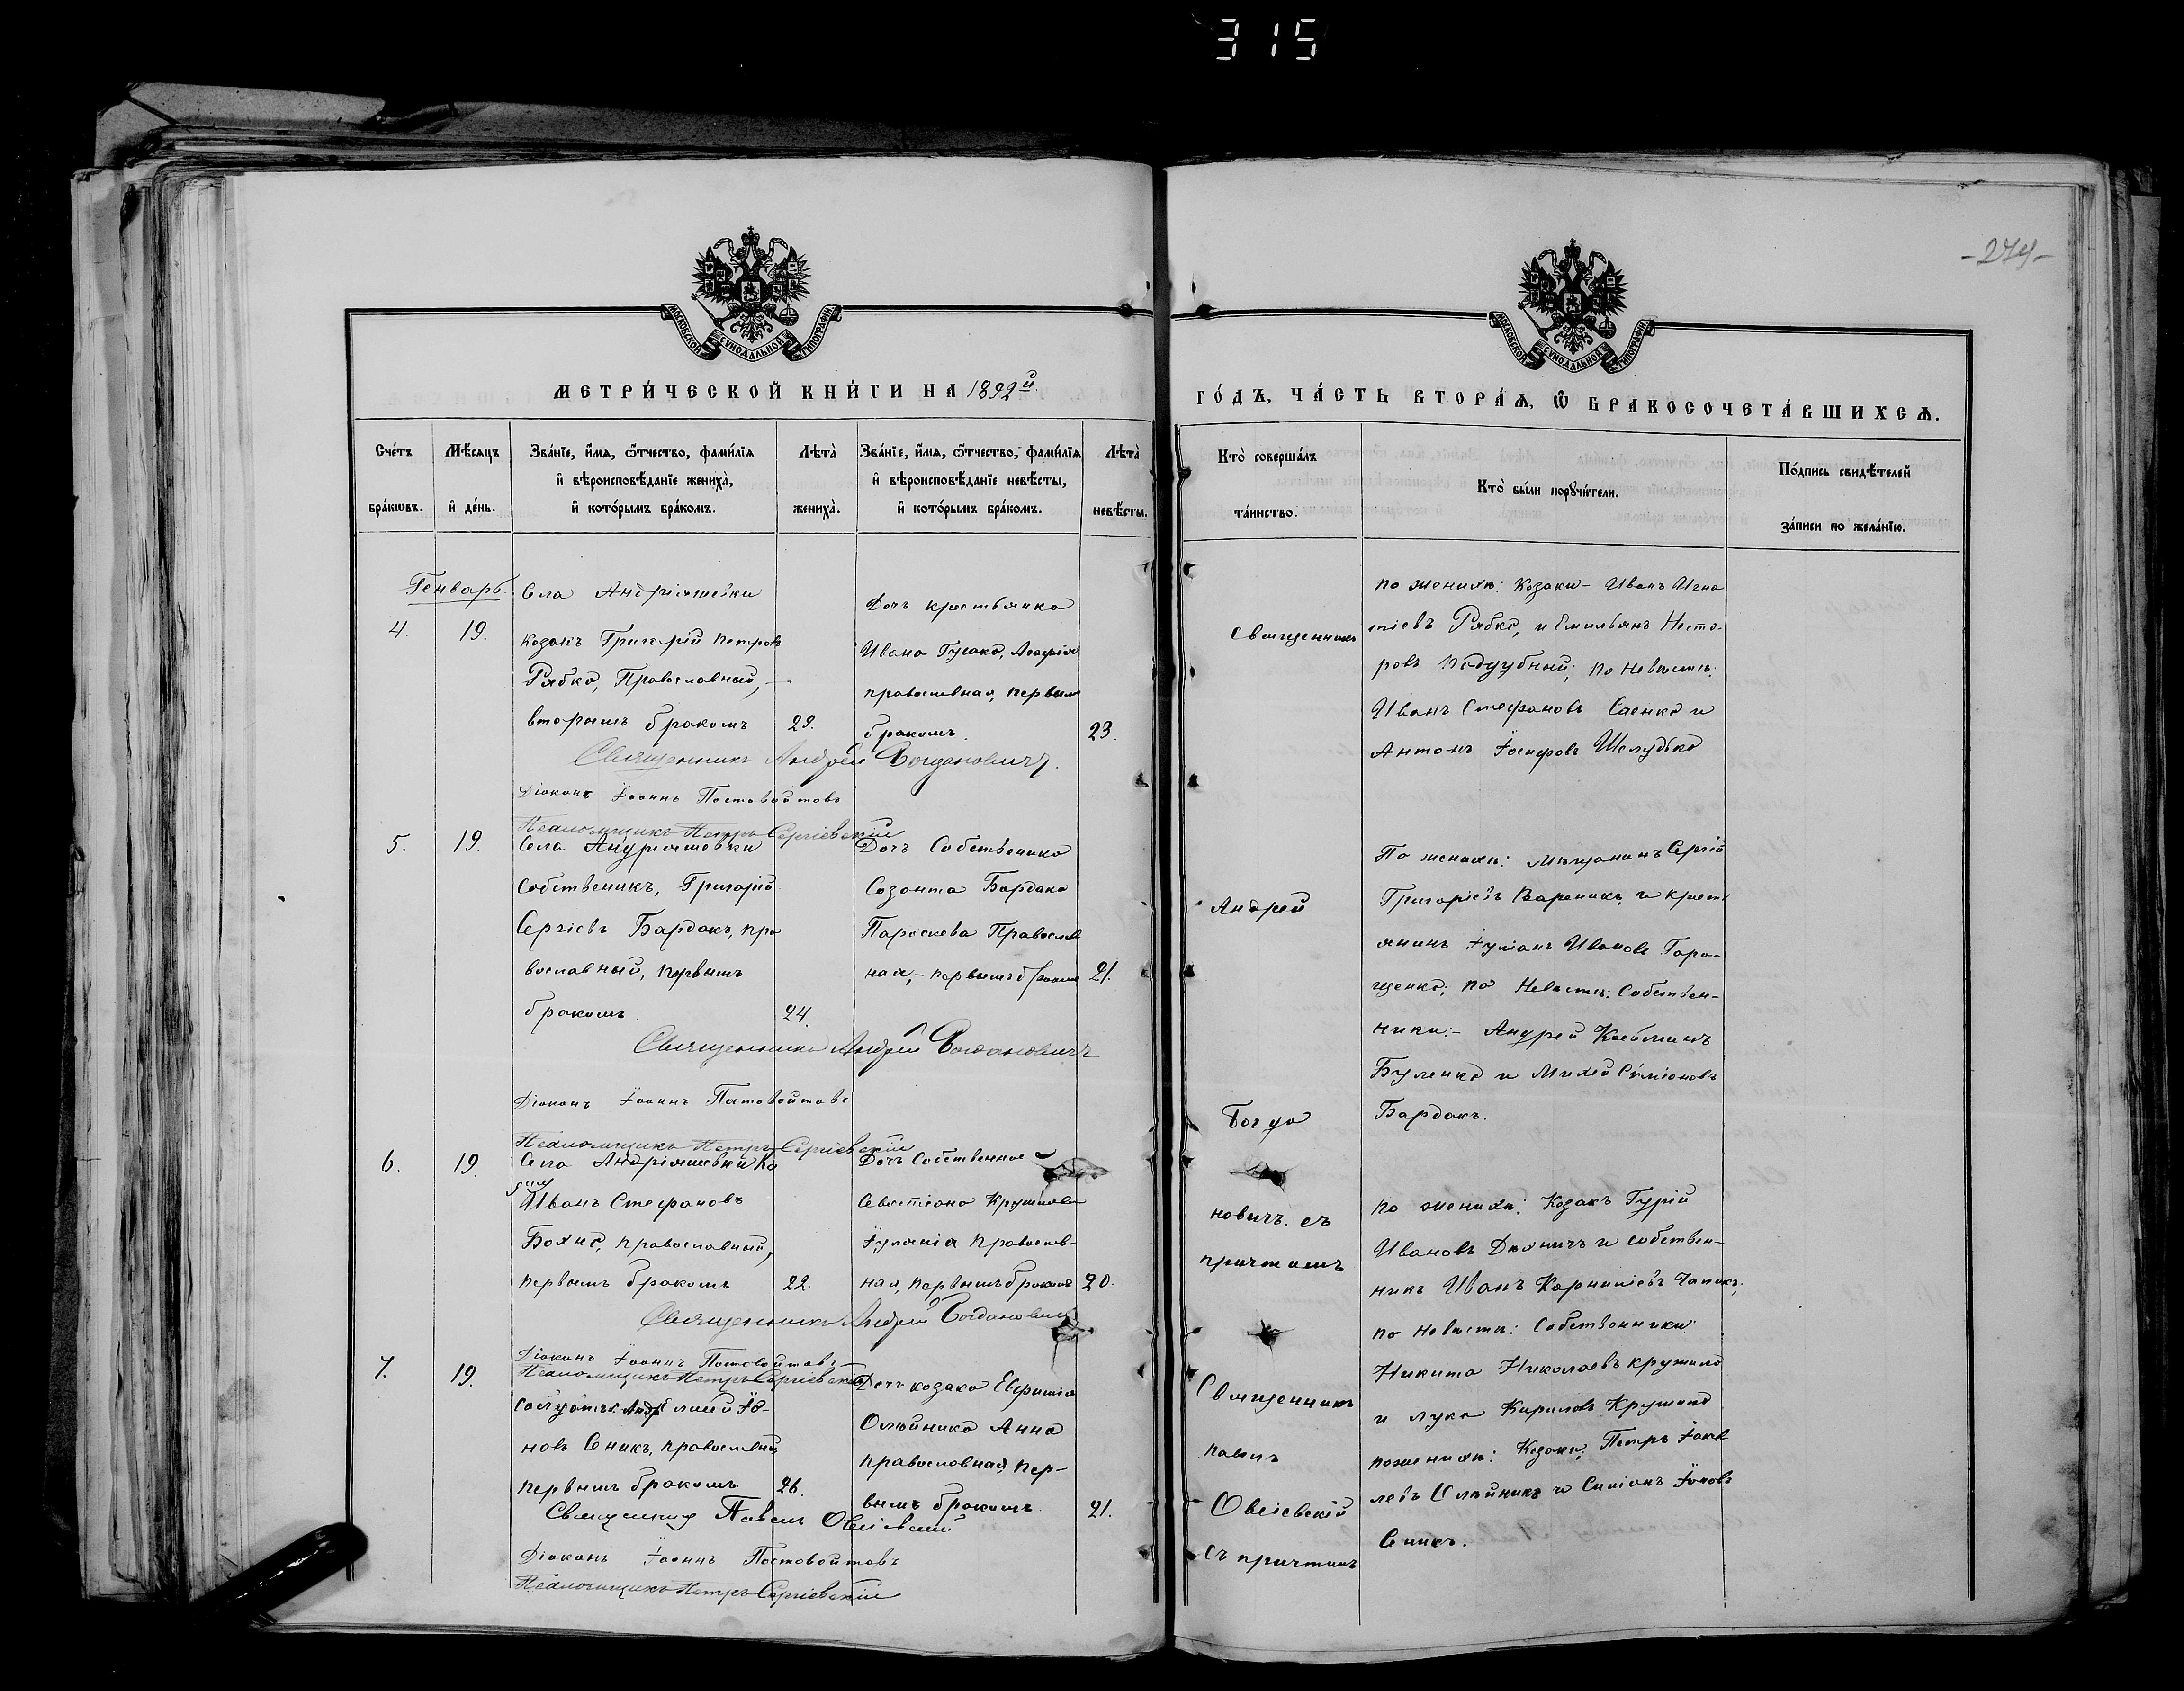 315
-274-
МОСКОВСКОЙ СѴНОДАЛЬНОЙ ТИПОГРАФІИ
МОСКОВСКОЙ СѴНОДАЛЬНОЙ ТИПОГРАФІИ
МЕТРИ́ЧЕСКОЙ КНИ́ГИ НА 1892й.
ГО́ДЪ, ЧА́СТЬ ВТОРА́Ѧ, Ѡ҆ БРАКОСОЧЕТА́ВШИХСѦ.
Сче́тъ бра́кѡвъ.
Мѣ́сяцъ и҆ де́нь.
Зва́нїе, и҆́мя, ѻ҆́тчество, фами́лїя
и҆ вѣроисповѣ́данїе жениха̀,
и҆ кото́рымъ бра́комъ.
Лѣта̀ жениха̀.
Зва́нїе, и҆́мя, ѻ҆́тчество, фами́лїя
и҆ вѣроисповѣ́данїе невѣ́сты,
и҆ кото́рымъ бра́комъ.
Лѣта̀ невѣ́сты.
Кто̀ соверша́лъ та́инство.
Кто̀ бы́ли порꙋчи́тели.
По́дпись свидѣ́телей за́писи по жела́нїю.
Генварь.
4.
19.
Села Андріяшевки
козакъ Григорій Петровъ
Рябко, Православный,
вторымъ бракомъ
29.
Дочъ крестьянка
Ивана Гусака,
православная, первымъ
бракомъ.
23.
Священникъ
по женихѣ: Козаки - Иванъ Игна
тіевъ Рябко, и Емильянъ Несто-
ровъ Поддубный; по Невѣстѣ:
Иванъ Стефановъ Саенко и
Антонъ Іосифовъ Шелудько
Священникъ Андрей Богдановичъ.
Діаконъ Іоаннъ Постовойтовъ
Псаломщикъ Петръ Сергіевскій
5.
19.
Села Андріяшевки
Собственикъ, Григорій
Сергіевъ Бардакъ, пра
вославный, первымъ
бракомъ.
24.
Дочъ Собственика
Созонта Бардака
Параскева Православ
ная, - первымъ бракомъ
21.
Андрей
По женихѣ: мѣщанинъ Сергій
Григоріевъ Вареникъ, и крест
янинъ Іуліанъ Ивановъ Гара-
щенко; по Невѣстѣ: Собствен-
ники: - Андрей Козьминъ
Буленко и Михей Симіоновъ
Бардакъ.
Священникъ Андрей Богдановичъ
Діаконъ Іоаннъ Постовойтовъ
Псаломщикъ Петръ Сергіевскій
6.
19.
Села Андріяшевки Ка
Иванъ Стефановъ
Бохно, православный,
первымъ бракомъ
22.
Дочъ Собственика
Севастіана Кружила
Іуліанія Православ-
ная, первымъ бракомъ
20.
Богда
новичъ съ
причтомъ
По женихѣ: Козакъ Гурій
Ивановъ Дахничъ и собствен-
никъ Иванъ Корниліевъ Чапикъ;
по Невѣстѣ: Собственники:
Никита Николаевъ Кружило
и Лука Кириловъ Кружило
Священникъ Андрей Богдановичъ
Діаконъ Іоаннъ Постовойтовъ
Псаломщикъ Петръ Сергіевскій
7.
19.
новъ Сникъ, православный
первымъ бракомъ
26.
Дочъ козака Евфимія
Олѣйника Анна
православная, пер-
вымъ бракомъ.
21.
Священникъ
Павелъ
Овсіевскій
съ причтомъ
по женихѣ: Козаки; Петръ Іаков
левъ Олѣйникъ и Симіонъ Іоновъ
Сникъ.
Священникъ Павелъ Овсіевскій
Діаконъ Іоаннъ Постовойтовъ
Псаломщикъ Петръ Сергіевскій